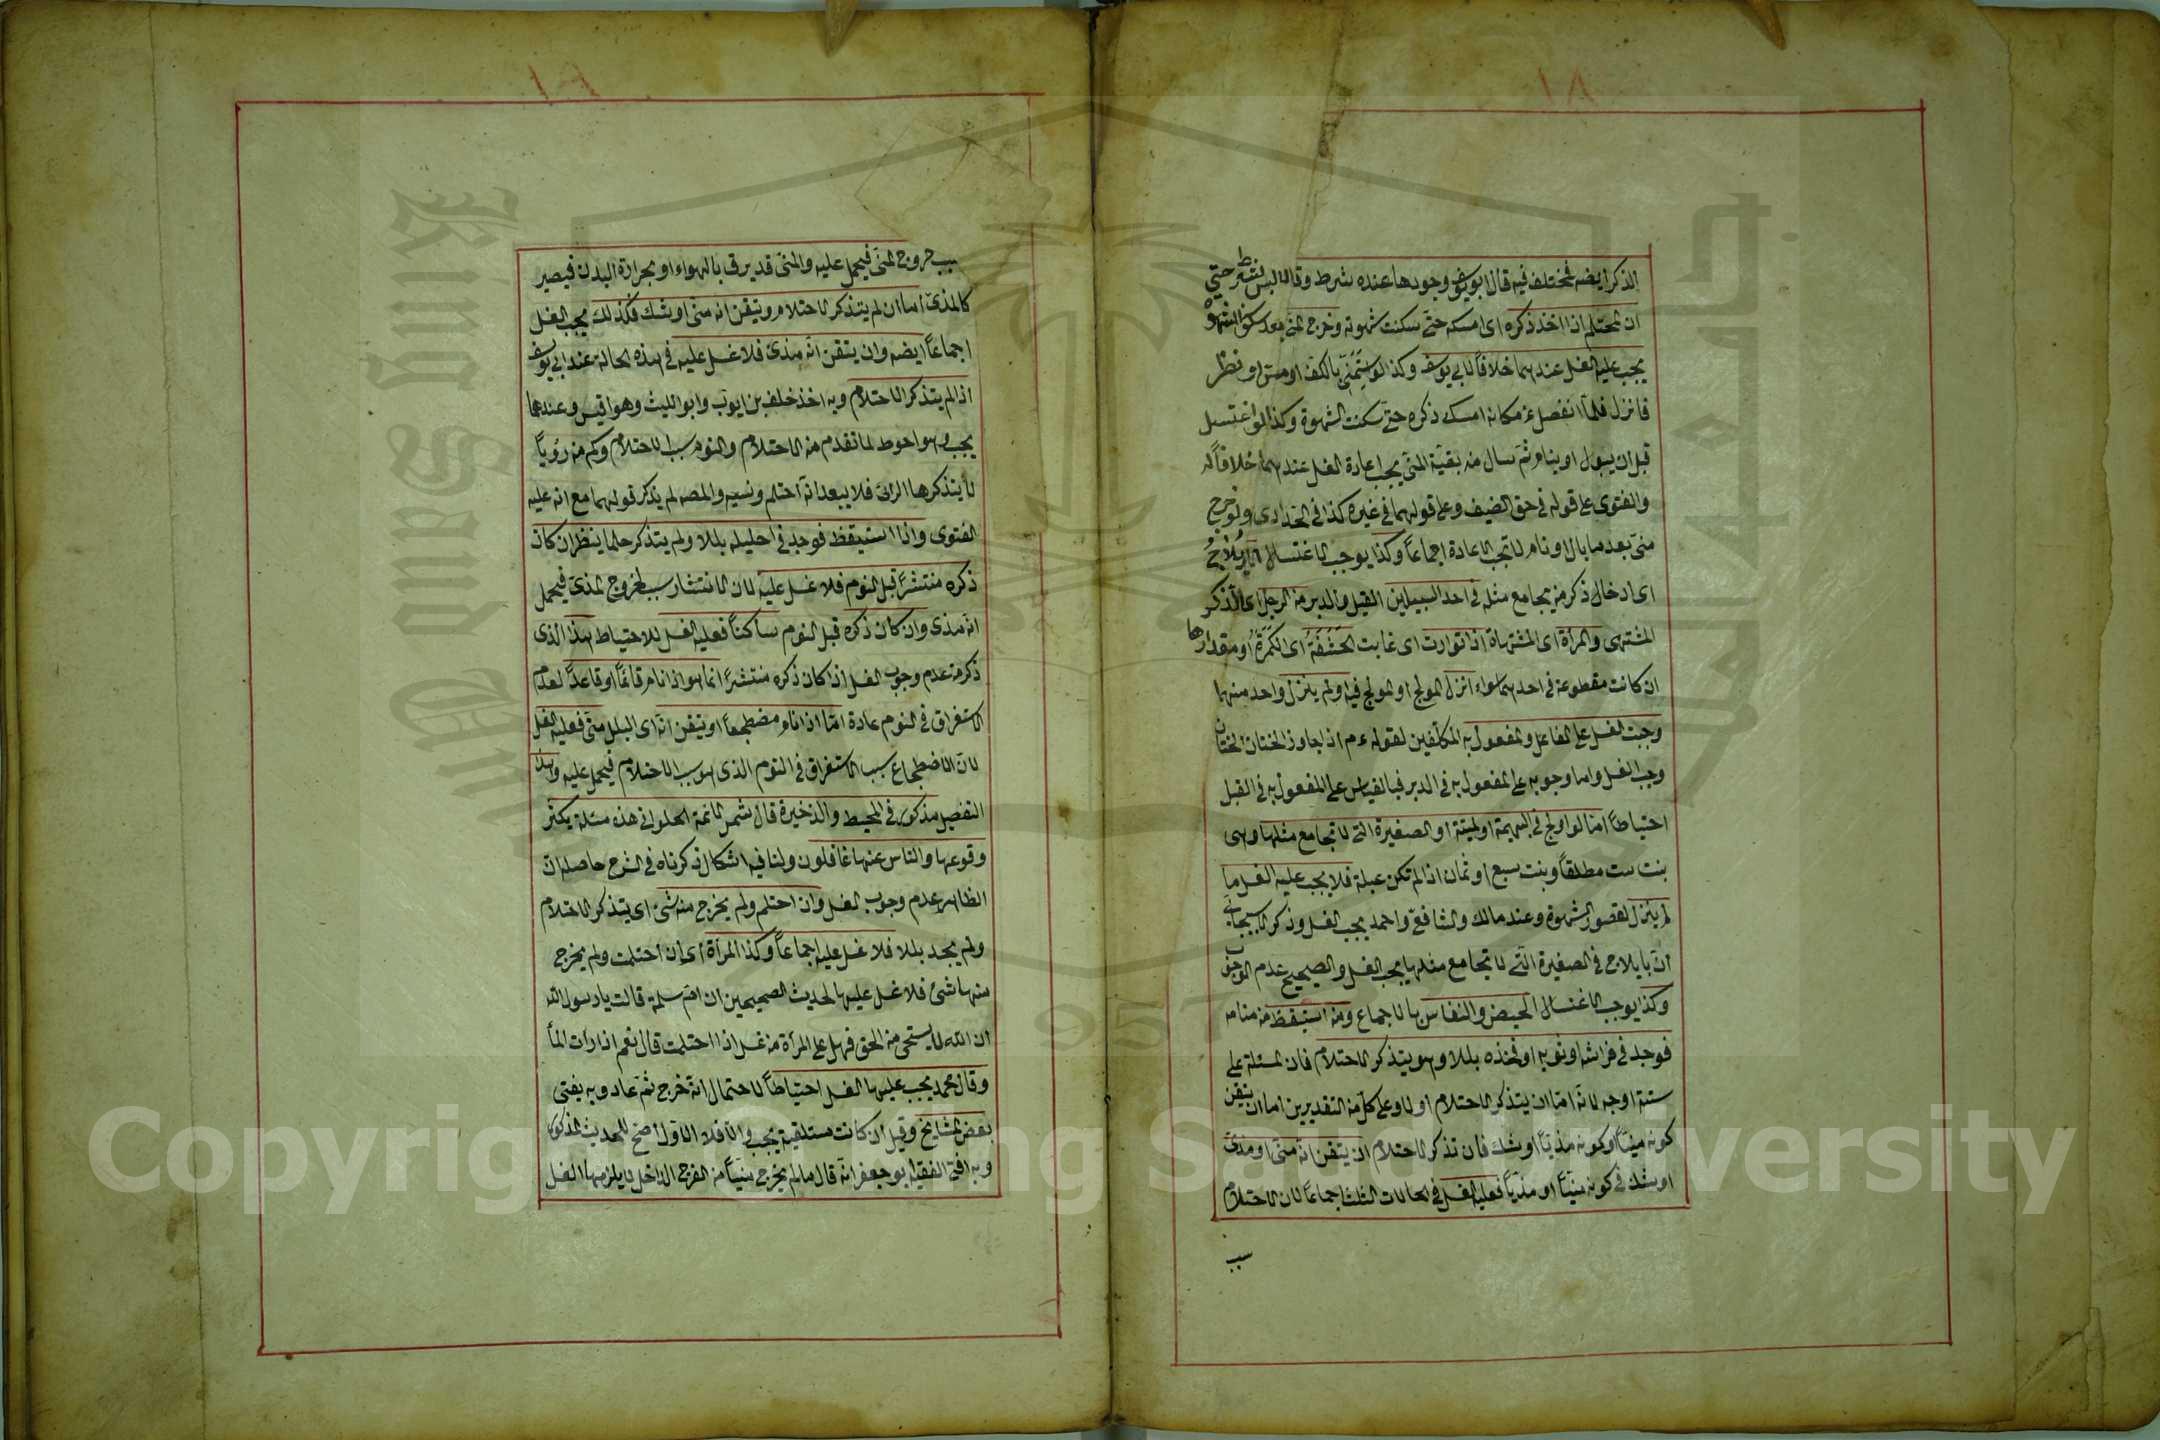 الذكر ايضه فمختلف فيه قال ابو يوسف وجودها عنده شرط وقالا ليس بشرط حتى
ان المحتلم اذا اخذ ذكره اى امسكه حتى سكنت شهوته وخرج المنى بعد سكون الشهوة
يجب عليه الغسل عندهما خلافاً لابى يوسف وكذا لو استمنى بالكف او مس او نظر
فانزل فلما انفصل عن مكانه امسك ذكره حتى سكنت الشهوة وكذا لو اغتسل
قبل ان يبول او ينام ثم سال منه بقية المنى يجب اعادة الغسل عندهما خلافاً له
والفتوى على قوله فى حق الضيف وعلى قولهما فى غيره كذا فى الحدادى ولو خرج
منى بعد ما بال او نام لا تجب الاعادة اجماعاً وكذا يوجب الاغتسال الايلاج
اى ادخال ذكر من يجامع مثله فى احد السبيلين القبل والدبر من الرجل اى الذكر
المشتهى والمرأة اى المشتهاة اذا توارت اى غابت الحشفة اى الكمرة او مقدارها
ان كانت مقطوعة فى احدهما سواء انزل المولج او المولج فيه او لم ينزل واحد منهما
وجبت الغسل على الفاعل والمفعول به المكلفين لقوله ءم اذا جاوز الختان الختان
وجب الغسل واما وجوبه على المفعول به فى الدبر فبالقياس على المفعول به فى القبل
احتياطاً اما لو اولج فى البهيمة او الميتة او الصغيرة التى لا تجامع مثلها وهى
بنت ست مطلقاً وبنت سبع او ثمان اذا لم تكن عبلة فلا يجب عليه الغسل ما
لم ينزل لقصور الشهوة وعند مالك والشافعى واحمد يجب الغسل وذكر الاسبيجابى
ان بايلاج فى الصغيرة التى لا تجامع مثلها يجب الغسل والصحيح عدم الوجوب
وكذا يوجب الاغتسال الحيض والنفاس بالاجماع ومن استيقظ من منامه
فوجد فى فراشه او ثوبه او فخذه بللا وهو يتذكر الاحتلام فان المسئلة على
ستة اوجه لانه اما ان يتذكر الاحتلام او لا وعلى كل من التقديرين اما ان يتيقن
كونه منياً او كونه مذياً او شك فان تذكر الاحتلام ان يتقن انه منى او مذى
او شك فى كونه منياً او مذياً فعليه الغسل فى الحالات الثلث اجماعاً لان الاحتلام
سبب
سبب خروج المنى فيحمل عليه والمنى قد يرق بالهواء او بحرارة البدن فيصير
كالمذى اما ان لم يتذكر الاحتلام وتيقن انه منى او شك فكذلك يجب الغسل
اجماعاً ايضه وان يتقن انه مذى فلا غسل عليه فى هذه الحالة عند ابى يوسف
اذا لم يتذكر الاحتلام وبه اخذ خلف بن ايوب وابو الليث وهو اقيس وعندهما
يجب وهو احوط لما تقدم من الاحتلام والنوم سبب الاحتلام وكم من رؤياً
لا يتذكرها الرائى فلا يبعد انه احتلم ونسيه والمصه لم يذكر قولهما مع انه عليه
الفتوى واذا استيقظ فوجد فى احليله بللا ولم يتذكر حلما ينظر ان كان
ذكره منتشراً قبل النوم فلا غسل عليه لان الانتشار سبب لخروج المذى فيحمل
انه مذى وان كان ذكره قبل النوم ساكناً فعليه الغسل للاحتياط هذا الذى
ذكر من عدم وجوب الغسل اذا كان ذكره منتشراً انما هو اذا نام قائماً او قاعداً لعدم
الاستغراق فى النوم عادة اما اذا نام مضطجعاً او تيقن انه اى البلل منى فعليه الغسل
لان الاضطجاع سبب الاستغراق فى النوم الذى هو سبب الاحتلام فيحمل عليه وهذا
التفصيل مذكور فى المحيط والذخيرة قال شمس الائمة الحلوانى هذه مسئلة يكثر
وقوعها والناس عنها غافلون ولنا فيه اشكال ذكرناه فى الشرح حاصله ان
الظاهر عدم وجوب الغسل وان احتلم ولم يخرج منه شئ اى يتذكر الاحتلام
ولم يجد بللا فلا غسل عليه اجماعاً وكذا المرأة اى ان احتلمت ولم يخرج
منها شئ فلا غسل عليها لحديث الصحيحين ان ام سلمة قالت يا رسول الله
ان الله لا يستحى من الحق فهل على المرأة من غسل اذا احتلمت قال نعم اذا رأت الماأ
وقال محمد يجب عليها الغسل احتياطاً لاحتمال انه خرج ثم عاد وبه يفتى
بعض المشايخ وقيل ان كانت مستلقية يجب والا فلا الاول اصح للحديث المذكور
وبه افتى الفقيه ابو جعفر انه قال ما لم يخرج منياً من الفرج الداخل لا يلزمها الغسل
Copyright © King Saud University